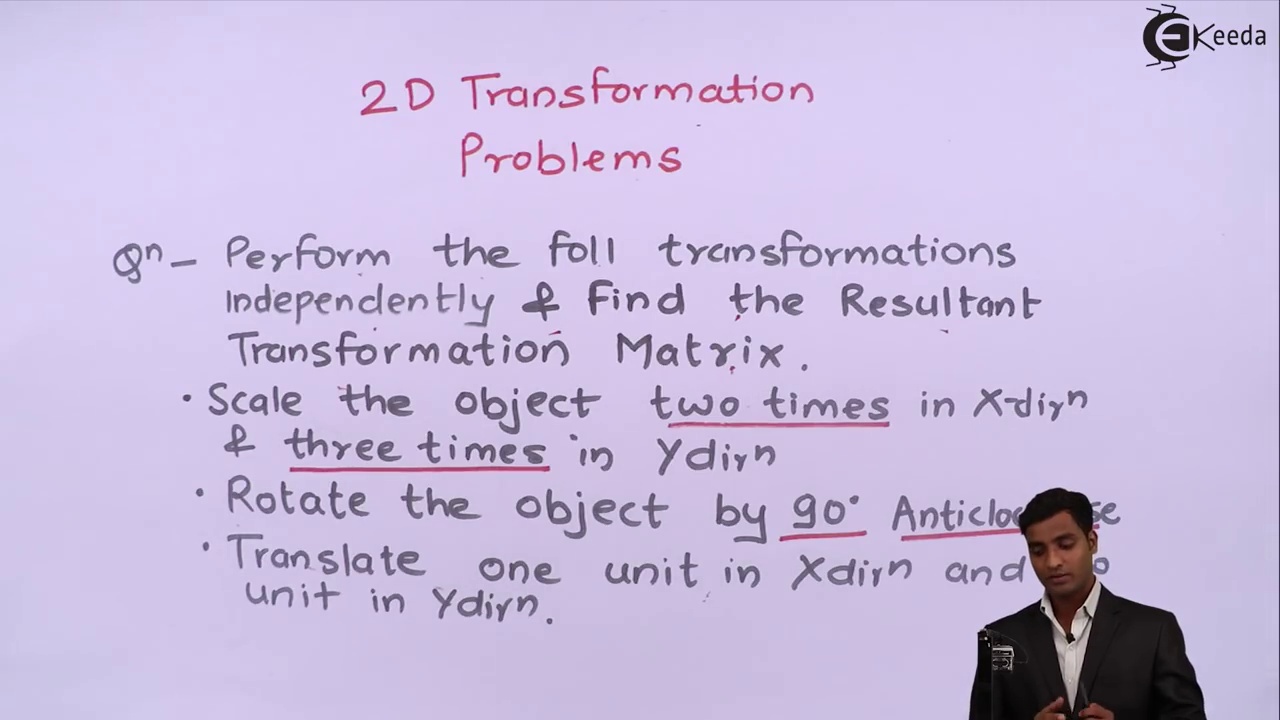 EKeeda
2D Transformation
Problems
Qn - Perform the foll transformations
Independently & Find the Resultant
Transformation Matrix.
• Scale the object two times in X-dirn
& three times in Ydirn
• Rotate the object by 90°
• Translate one unit in Xdirn and
unit in Ydirn.